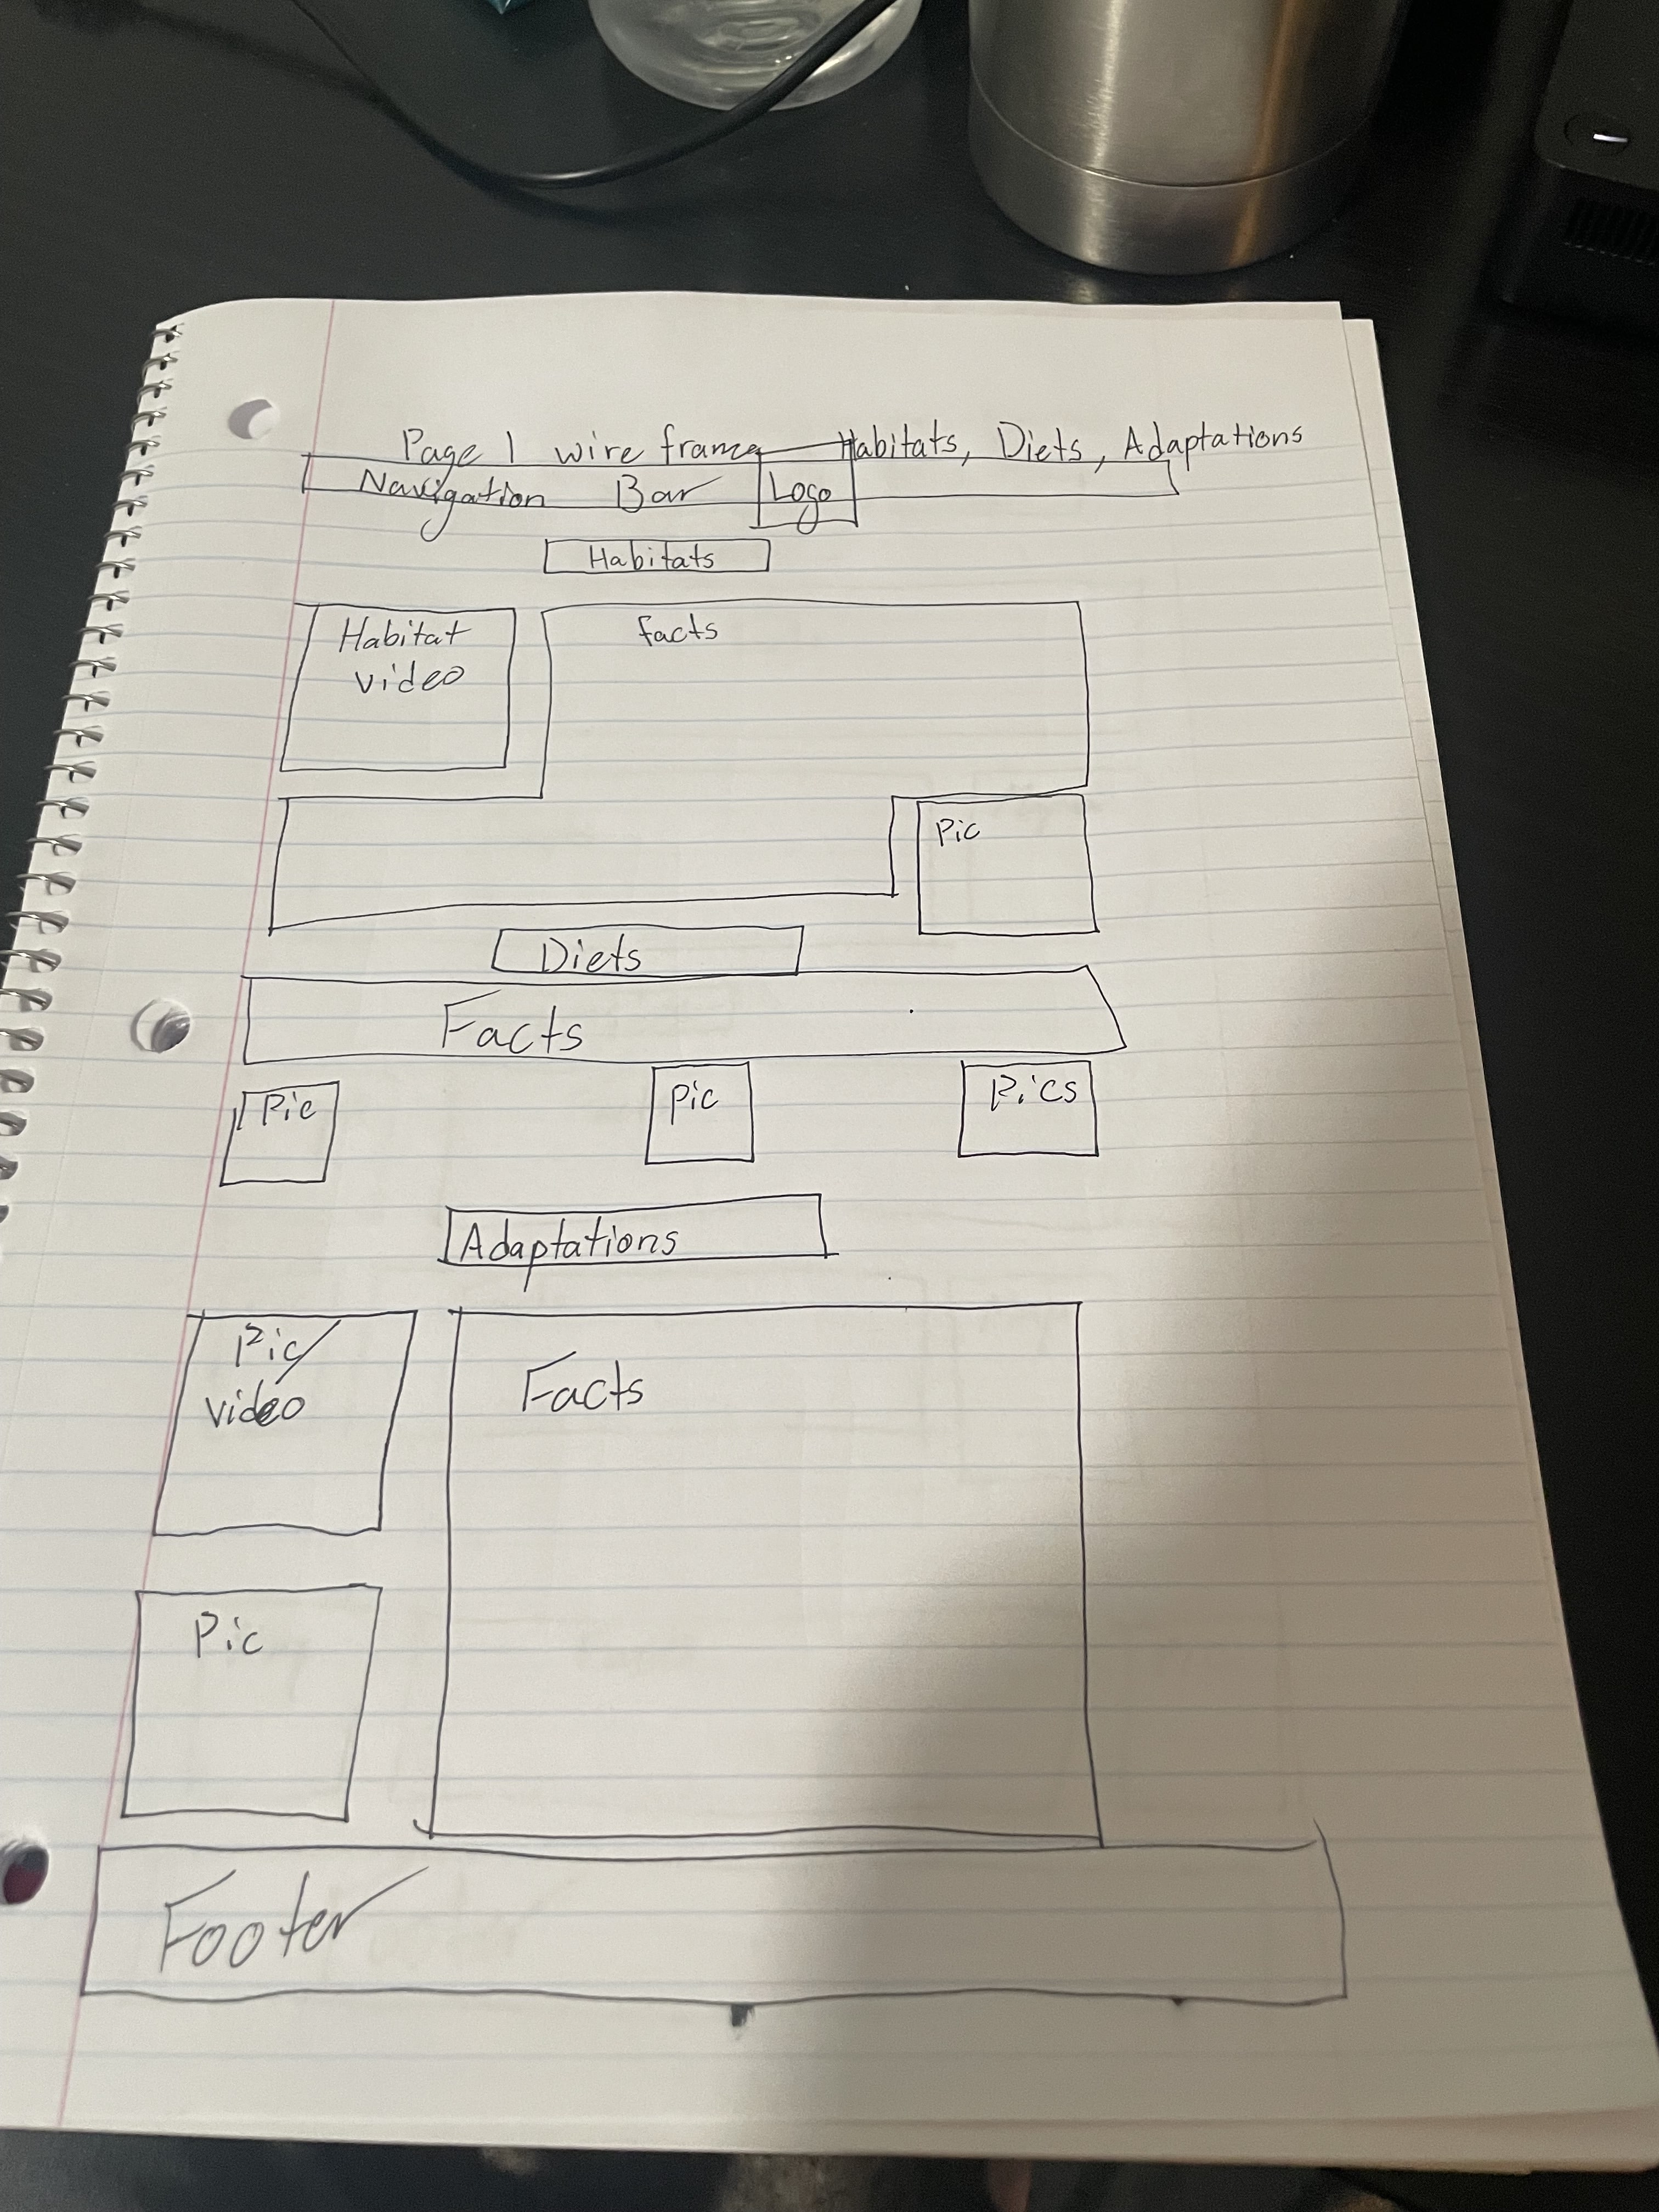 Page 1 wire frame — Habitats, Diets, Adaptations
Navigation Bar Logo
Habitats
Habitat
video
facts
Pic
Diets
Facts
Pic
Pic
Pics
Adaptations
Pic/
video
Facts
Pic
Footer